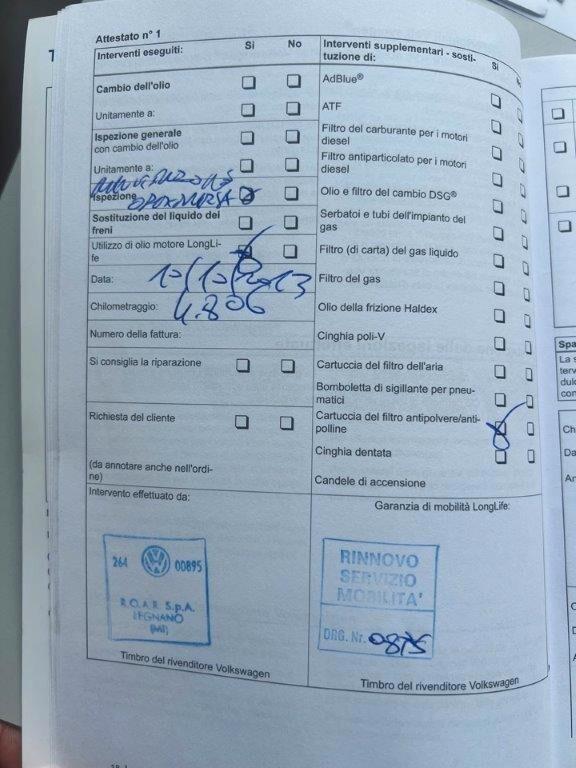 Attestato n° 1
Interventi eseguiti: Si No
Cambio dell'olio
Unitamente a:
Ispezione generale
con cambio dell'olio
Unitamente a:
Ispezione
Sostituzione del liquido dei
freni
Utilizzo di olio motore LongLi-
fe
Data:
Chilometraggio: 4.806
Numero della fattura:
Si consiglia la riparazione
Richiesta del cliente
(da annotare anche nell'ordi-
ne)
Intervento effettuato da:
264 00895
R.O.A.R. S.p.A.
LEGNANO
(MI)
Timbro del rivenditore Volkswagen
Interventi supplementari - sosti-
tuzione di: Si
AdBlue®
ATF
Filtro del carburante per i motori
diesel
Filtro antiparticolato per i motori
diesel
Olio e filtro del cambio DSG®
Serbatoi e tubi dell'impianto del
gas
Filtro (di carta) del gas liquido
Filtro del gas
Olio della frizione Haldex
Cinghia poli-V
Cartuccia del filtro dell'aria
Bomboletta di sigillante per pneu-
matici
Cartuccia del filtro antipolvere/anti-
polline
Cinghia dentata
Candele di accensione
Garanzia di mobilità LongLife:
RINNOVO
SERVIZIO
MOBILITA'
ORG. Nr. 0875
Timbro del rivenditore Volkswagen